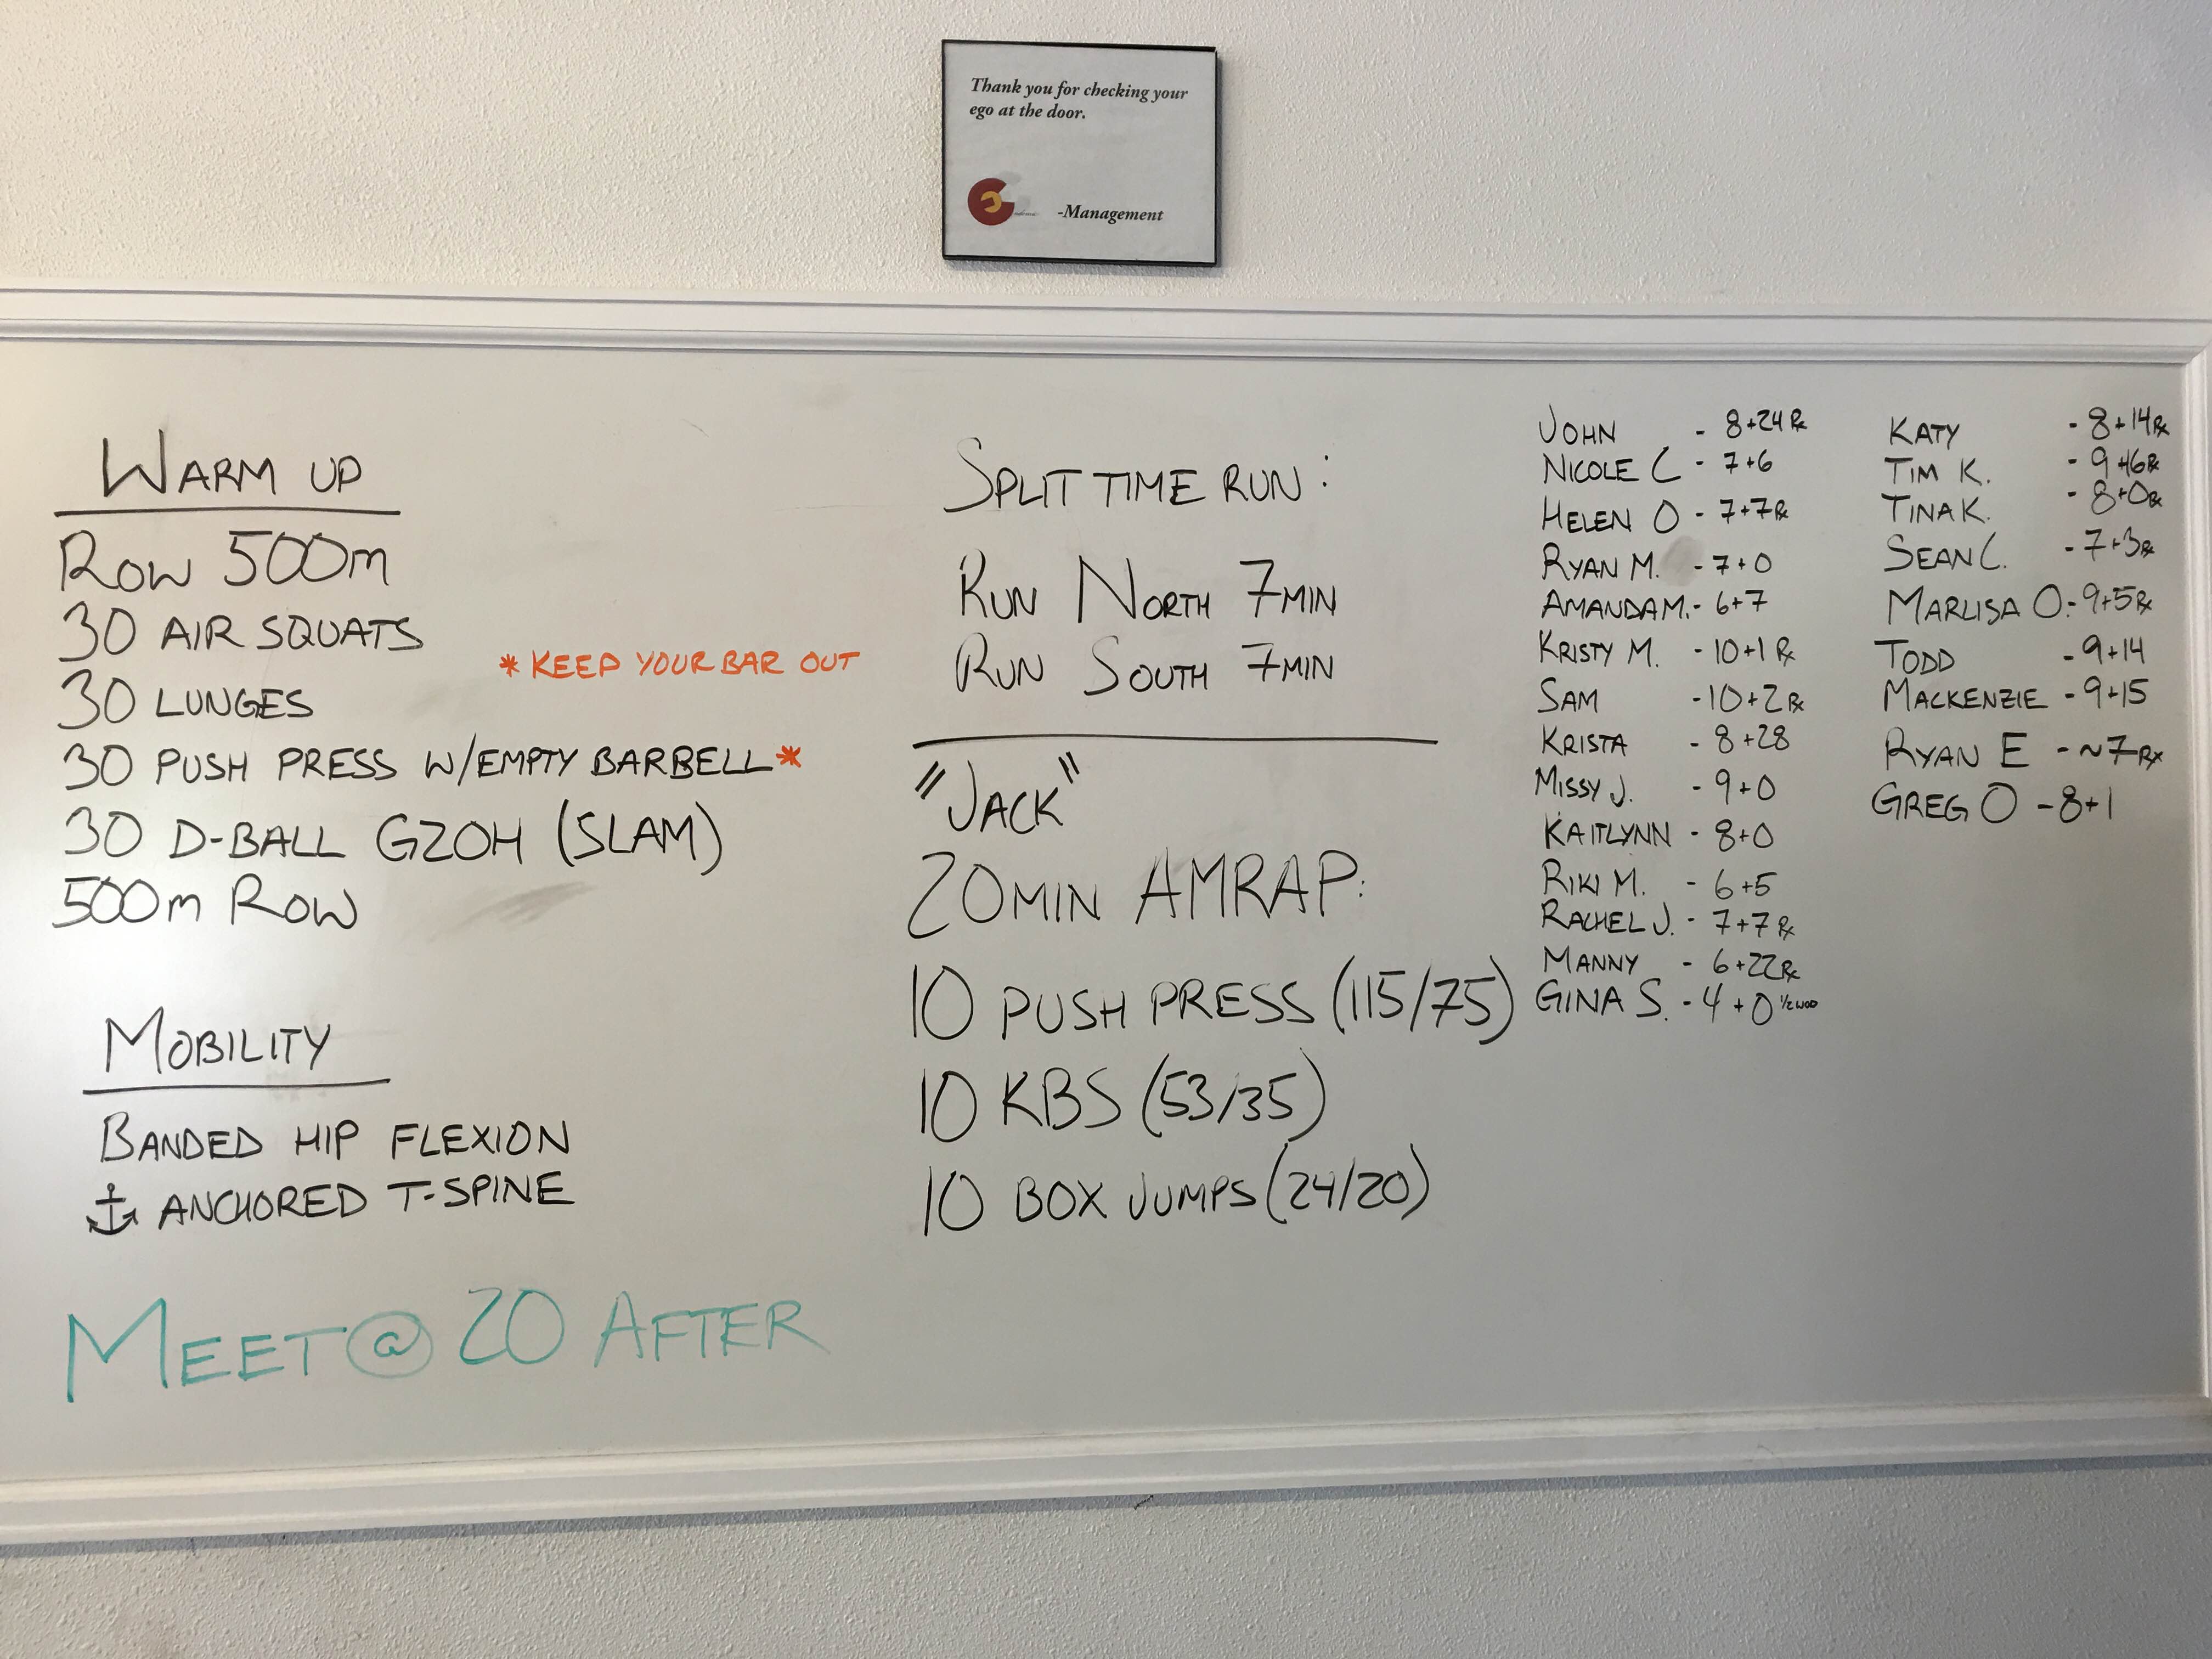 Thank you for checking your
ego at the door.
-Management
WARM UP
ROW 500m
30 AIR SQUATS
30 LUNGES
* KEEP YOUR BAR OUT
30 PUSH PRESS W/EMPTY BARBELL*
30 D-BALL G2OH (SLAM)
500m ROW
MOBILITY
BANDED HIP FLEXION
ANCHORED T-SPINE
MEET @ 20 AFTER
SPLIT TIME RUN:
RUN NORTH 7MIN
RUN SOUTH 7MIN
"JACK"
20MIN AMRAP:
10 PUSH PRESS (115/75)
10 KBS (53/35)
10 BOX JUMPS (24/20)
JOHN - 8+24 Rx
NICOLE C - 7+6
HELEN O - 7+7 Rx
RYAN M. - 7+0
AMANDA M. - 6+7
KRISTY M. - 10+1 Rx
SAM - 10+2 Rx
KRISTA - 8+28
MISSY J. - 9+0
KAITLYNN - 8+0
RIKI M. - 6+5
RACHEL J. - 7+7 Rx
MANNY - 6+22 Rx
GINA S. - 4+0 1/2 WOD
KATY - 8+14 Rx
TIM K. - 9+6 Rx
TINA K. - 8+0 Rx
SEAN C. - 7+3 Rx
MARLISA O. - 9+5 Rx
TODD - 9+14
MACKENZIE - 9+15
RYAN E - ~7 Rx
GREG O - 8+1